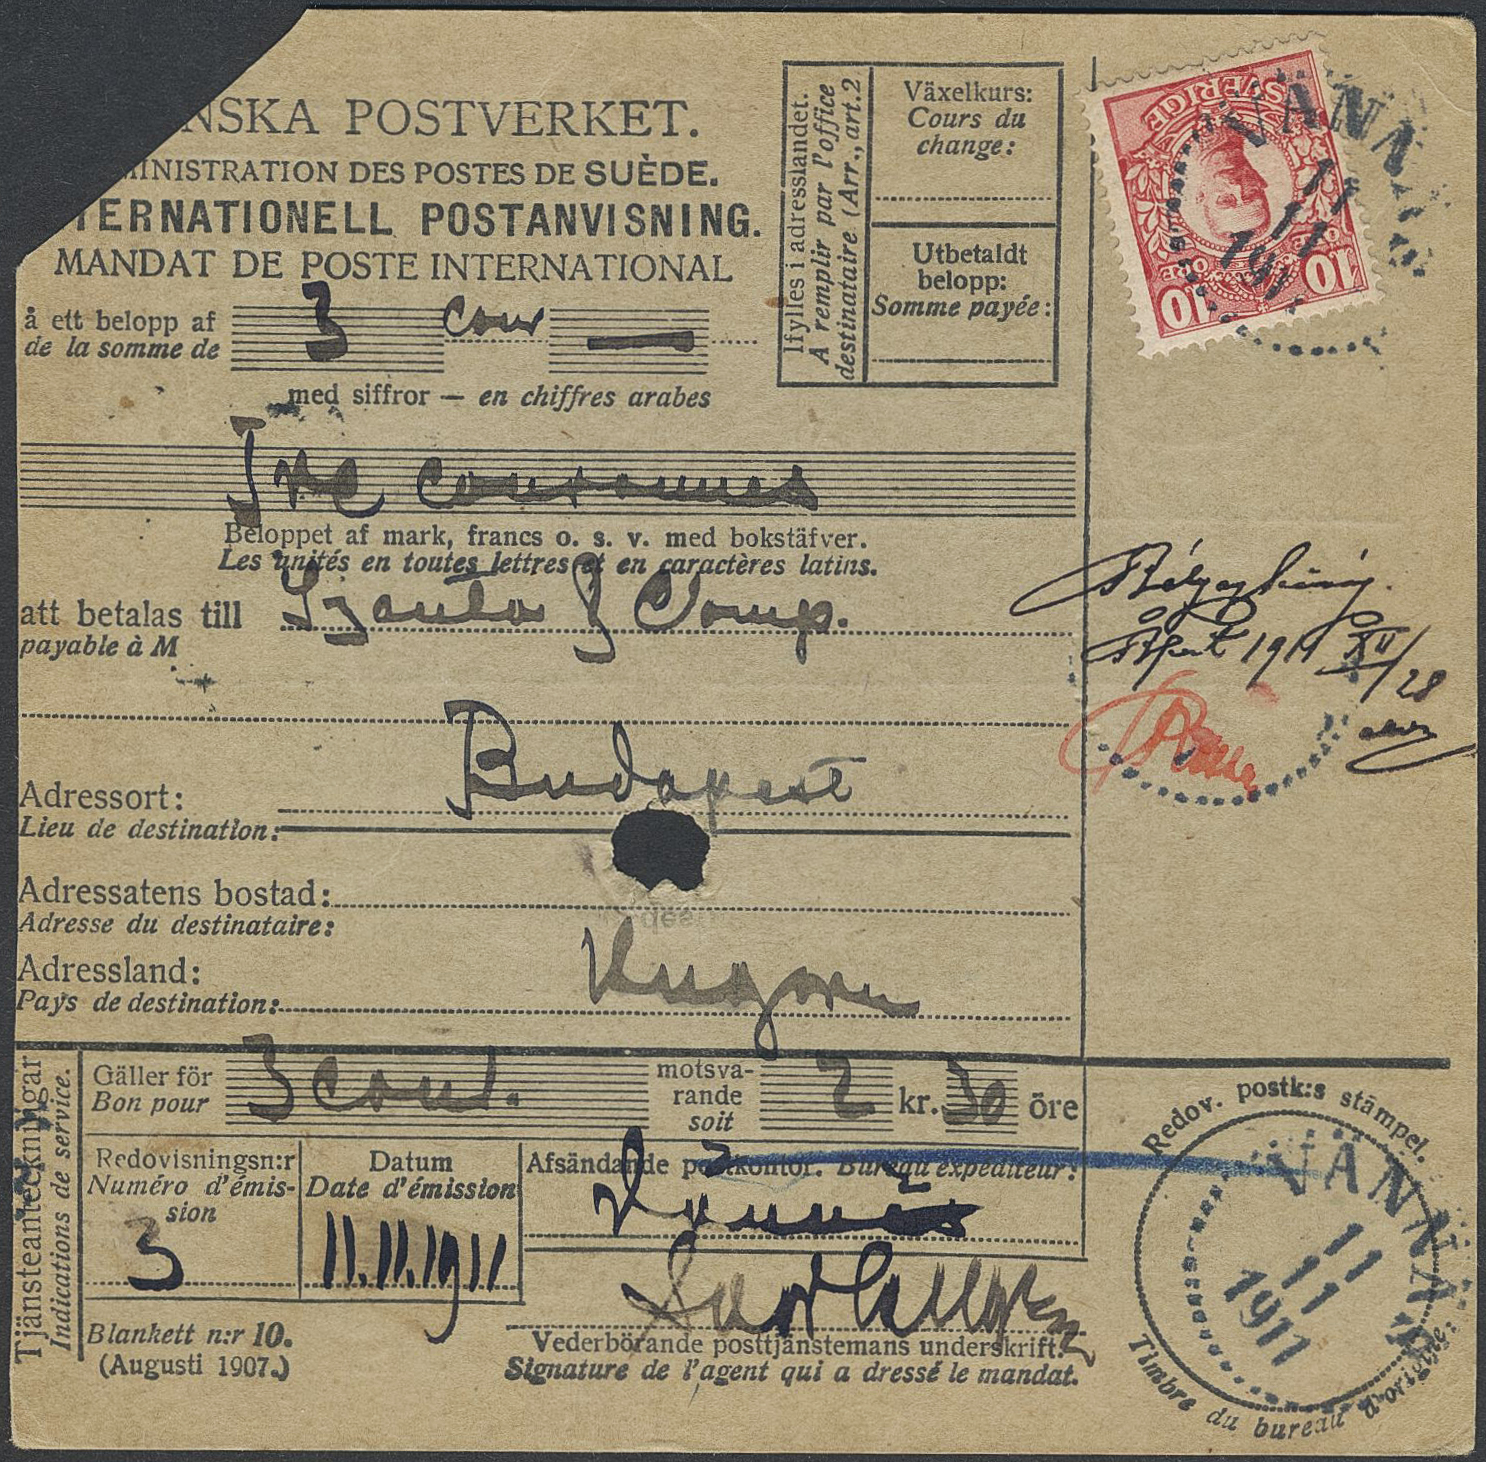 NSKA POSTVERKET.
MINISTRATION DES POSTES DE SUÈDE.
TERNATIONELL POSTANVISNING.
MANDAT DE POSTE INTERNATIONAL
å ett belopp af
de la somme de
3 cour —
med siffror — en chiffres arabes
Ifylles i adresslandet.
A remplir par l'office
destinataire (Arr., art. 2
Växelkurs:
Cours du
change:
Utbetaldt
belopp:
Somme payée:
SVERIGE
10 ÖRE ÖRE 10
VÄNNÄS
11
11
1911
Tre couronnes
Beloppet af mark, francs o. s. v. med bokstäfver.
Les unités en toutes lettres et en caractères latins.
att betalas till Szanto & Comp.
payable à M
1911 XII/28
Budapest
Adressort:
Lieu de destination:
Adressatens bostad:
Adresse du destinataire:
Adressland: Ungarn
Pays de destination:
Tjänsteanteckningar
Indications de service.
Gäller för
Bon pour
3 cour.
motsva-
rande
soit
2 kr. 30 öre
Redovisningsn:r
Numéro d'émis-
sion
3
Datum
Date d'émission
11.11.1911
Afsändande postkontor. Bureau expéditeur:
Vännäs
Vederbörande posttjänstemans underskrift.
Signature de l'agent qui a dressé le mandat.
Blankett n:r 10.
(Augusti 1907.)
Redov. postk:s stämpel.
VÄNNÄS
11
11
1911
Timbre du bureau d'origine.